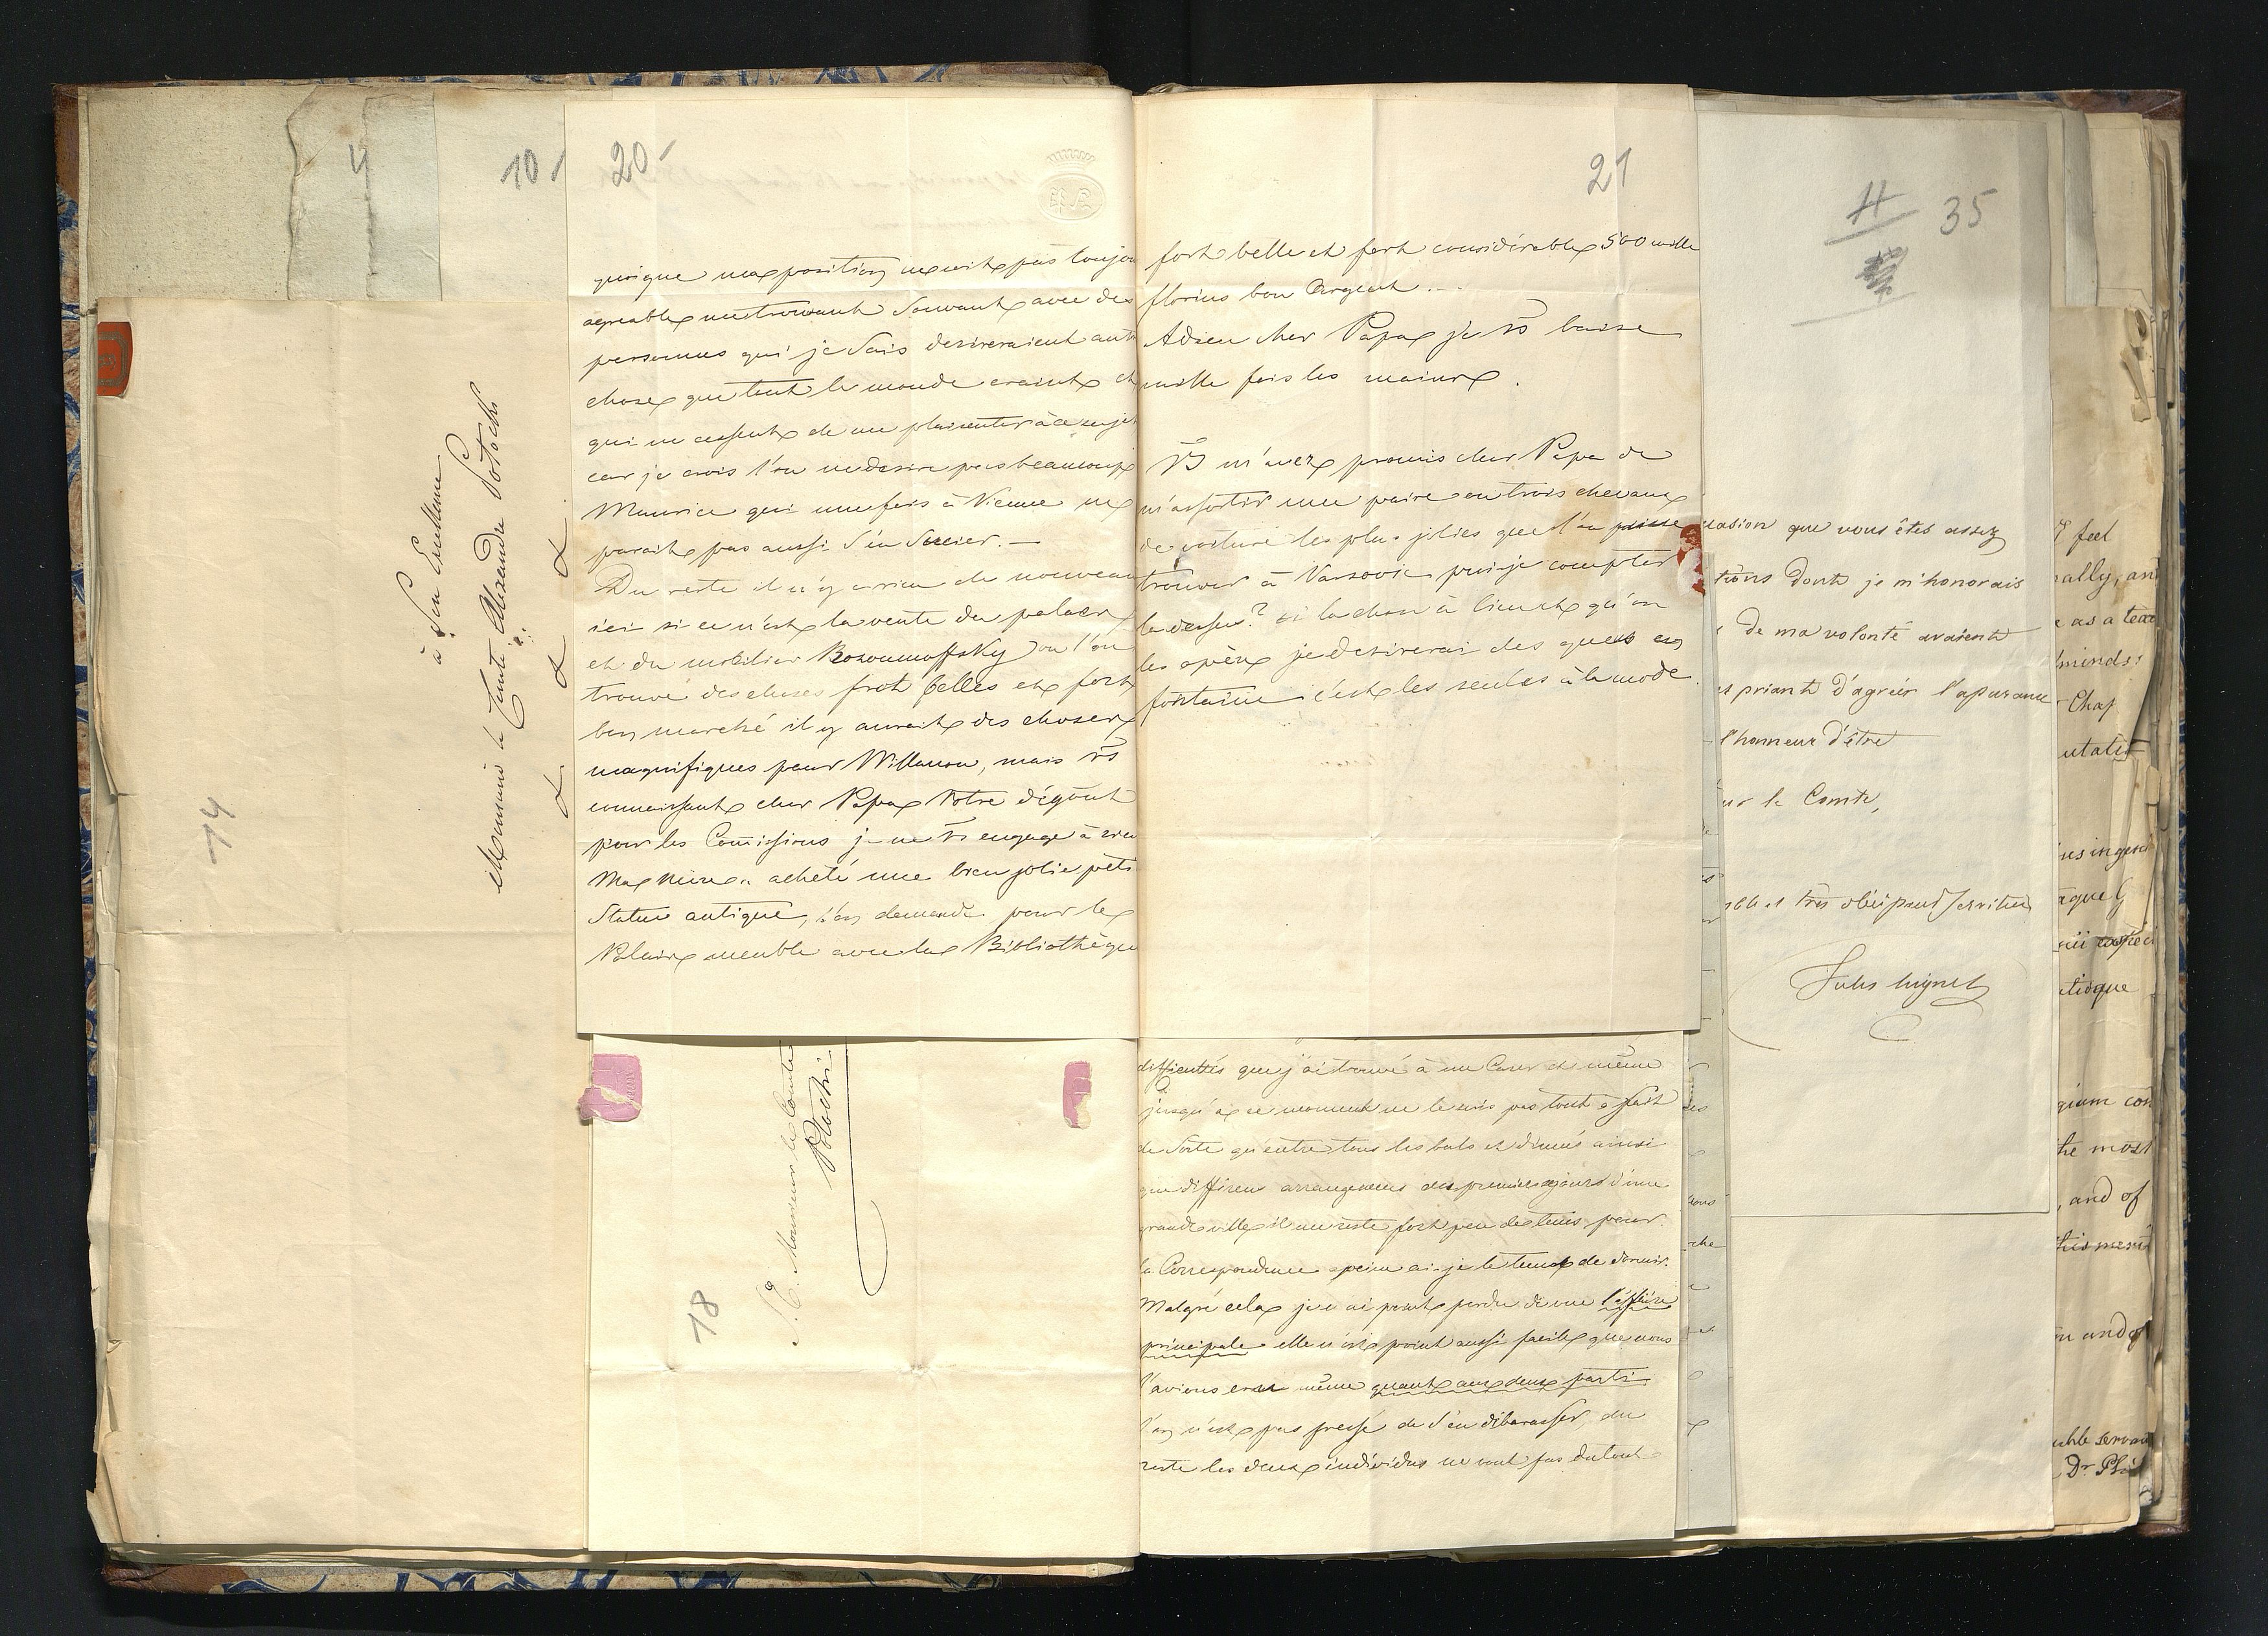 4
10
20
quoique ma position ne soit pas toujou
agreable me trouvant souvant avec des
personnes qui je sais desireraient autre
chose que tout le monde craint et
qui ne cessent de me plaisenter à ce sujet
car je crois l'on ne desire pas beaucoup
Maurice qui une fois à Vienne ne
parait pas aussi s'en soucier. —
Du reste il n'y a rien de nouveau
ici si ce n'est la vente du palais
et du mobilier Rosoumoffsky ou l'on
trouve des choses frot belles et fort
bon marché il y aurait des choses
magnifiques pour Willanow, mais vs
connaissant cher Papa Votre dégout
pour les Comissions je ne vs engage à rien
Ma Mère a acheté une bien jolie petite
Statue antique, l'on demande pour le
Palais meublé avec la Bibliothèque
21
fort belle et fort considérable 500 mille
florins bon Argent. —
Adieu cher Papa je vs baise
mille fois les mains.
Vs m'avez promis cher Papa de
m'assortir une paire ou trois chevaux
de voiture les plus jolies que l'on puisse
trouver à Varsovie puis-je compter
la dessus? si la chose à lieu et qu'on
les opère je desirerai des queues en
fontaine c'est les seules à la mode.
à Son Excellence
Monsieur le Comte Alexandre Potocki
à
14
S. E. Monsieur le Comte
Potocki
18
difficultés que j'ai trouvé à me Caser et même
jusqu'à ce moment ne le suis pas tout à fait
de sorte qu'entre tous les bals et dinés ainsi
que differens arrangemens des premiers jours d'une
grande ville il me reste fort peu de tems pour
la Correspondence a peine ai-je le tems de dormir.
Malgré cela je n'ai point perdu de vue l'affaire
principale elle n'est point aussi facile que nous
l'avions cru même quant aux deux partis
l'on n'est pas pressé de s'en débarasser, du
reste les deux individus ne vont pas du tout
35
casion que vous êtes assez
tions dont je m'honorais
de ma volonté avaient
priant d'agréer l'assurance
l'honneur d'être
ur le Comte,
très obéissant serviteur
Jules Mignet
feel
rally, and
as a tea
minds
Chap
utatis
gium con
the most
, and of
this meri
n and of
mble serva
Dr Phil